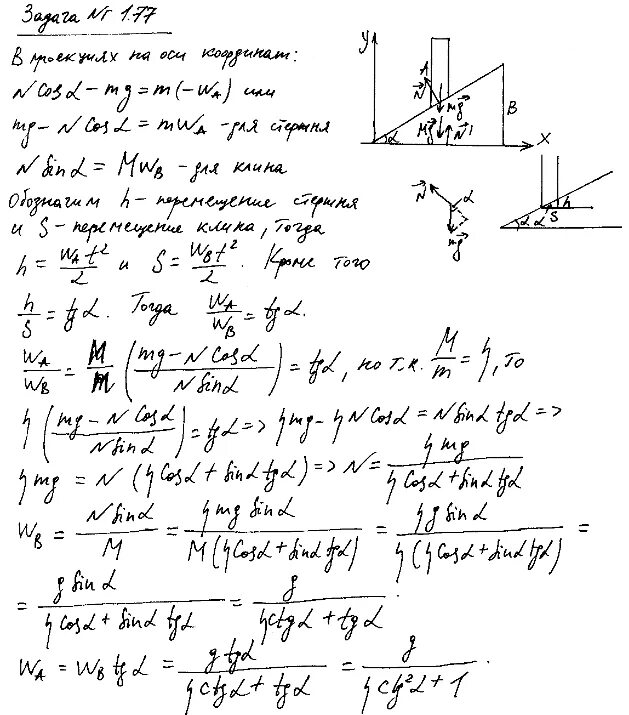 Задача № 1.77
В проекциях на оси координат:
N Cosα - mg = m(-W_A) или
mg - N Cosα = mW_A - для стержня
N Sinα = MW_B - для клина
Обозначим h - перемещение стержня
и S - перемещение клина, тогда
h = W_A t²/2 и S = W_B t²/2. Кроме того
h/S = tgα. Тогда W_A/W_B = tgα.
W_A/W_B = M/m (mg - N Cosα / N Sinα) = tgα, но т.к. M/m = η, то
η (mg - N Cosα / N Sinα) = tgα => ηmg - ηN Cosα = N Sinα tgα =>
ηmg = N (ηCosα + Sinα tgα) => N = ηmg / ηCosα + Sinα tgα
W_B = N Sinα / M = ηmg Sinα / M(ηCosα + Sinα tgα) = ηg Sinα / η(ηCosα + Sinα tgα) =
= g Sinα / ηCosα + Sinα tgα = g / ηctgα + tgα.
W_A = W_B tgα = g tgα / ηctgα + tgα = g / ηctg²α + 1.
y
A
N
mg
B
Mg
N'
α
x
N
α
mg
α
α
S
h